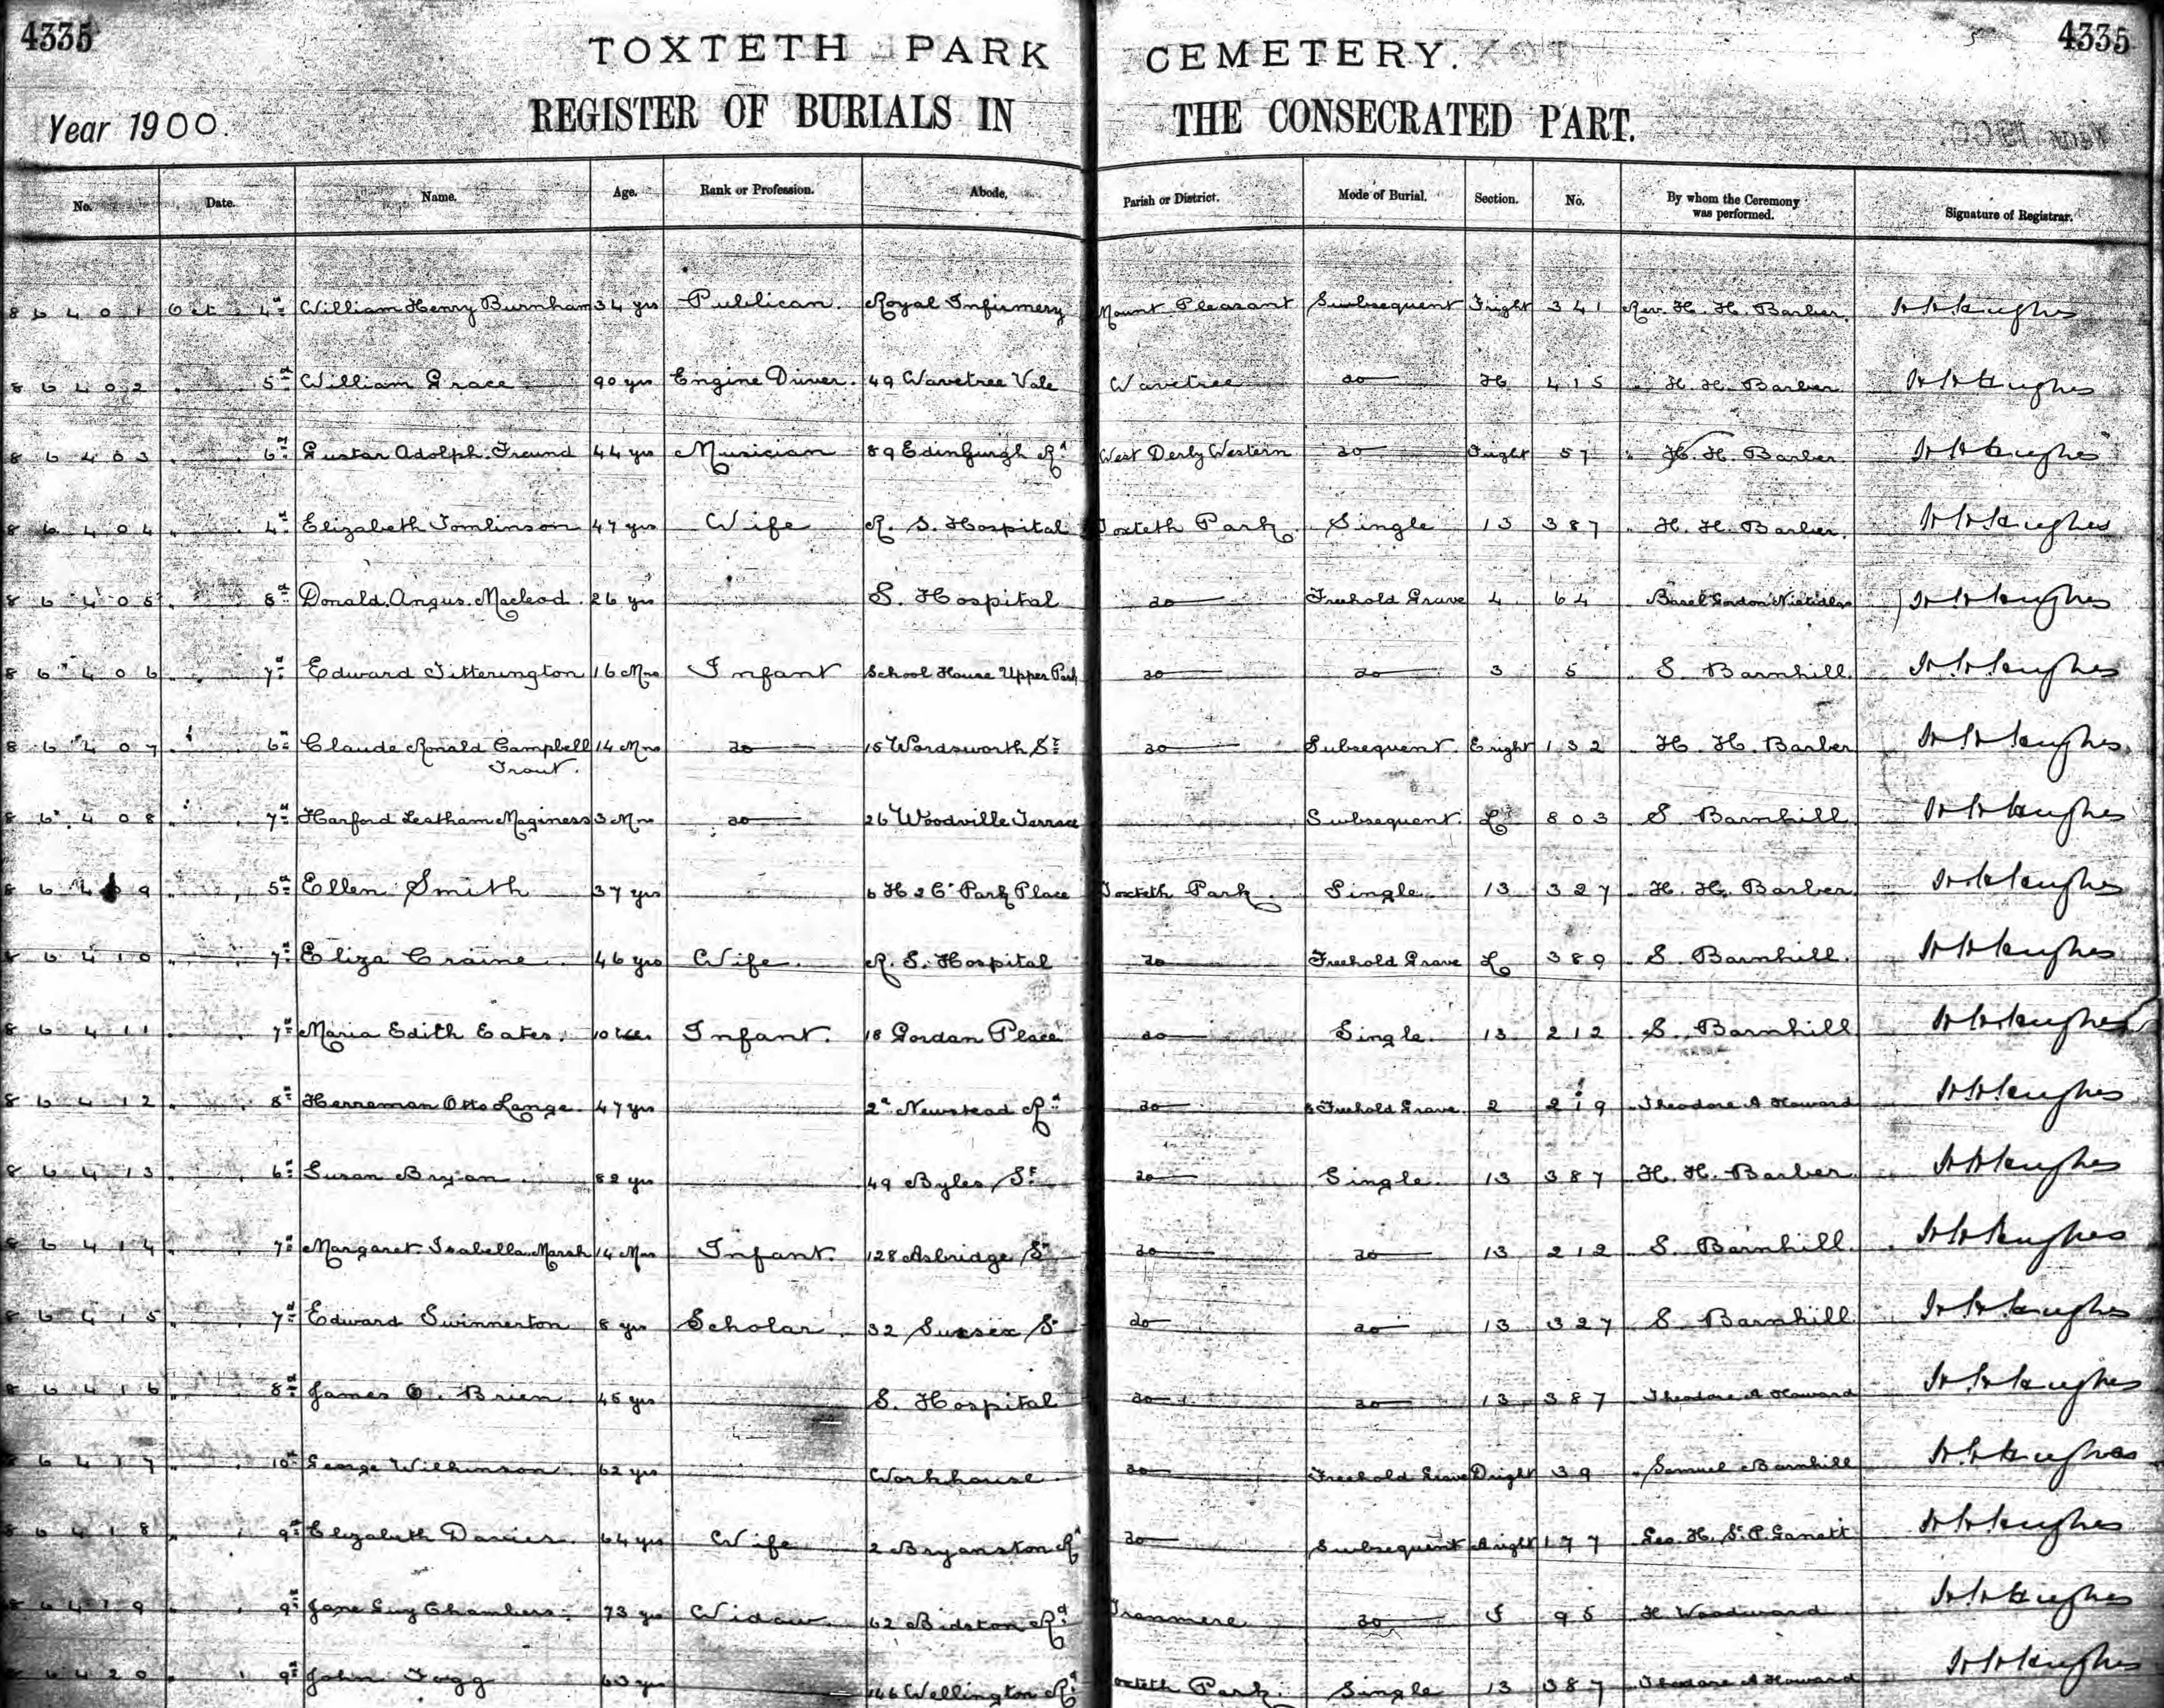 4335 TOXTETH PARK CEMETERY. 4335
Year 1900. REGISTER OF BURIALS IN THE CONSECRATED PART.
No. Date. Name. Age. Rank or Profession. Abode. Parish or District. Mode of Burial. Section. No. By whom the Ceremony was performed. Signature of Registrar.
86401 Oct 4th William Henry Burnham 34 yrs Publican. Royal Infirmery Mount Pleasant Subsequent Fright 341 Rev. H. H. Barber.
86402 " 5th William Grace 90 yrs Engine Driver. 49 Wavetree Vale Wavetree do H 415 " H. H. Barber
86403 " 6th Gustav Adolph Freund 44 yrs Musician 89 Edinburgh Rd West Derby Western do Fright 57 " H. H. Barber
86404 " 4th Elizabeth Tomlinson 47 yrs Wife R. S. Hospital Toxteth Park Single 13 387 " H. H. Barber.
86405 " 8th Donald Angus Macleod 26 yrs S. Hospital do Freehold Grave 4 64
86406 " 7th Edward Titterington 16 Mns Infant School House Upper Park do do 3 5 " S. Barnhill
86407 " 6th Claude Ronald Campbell Trout. 14 Mns do 15 Wordsworth St do Subsequent. E right 132 H. H. Barber
86408 " 7th Harford Leatham Maginess 3 Mns do 26 Woodville Terrace Subsequent. L 803 S. Barnhill
86409 " 5th Ellen Smith 37 yrs 6 H 2 C Park Place Toxteth Park Single 13 327 " H. H. Barber
86410 " 7th Eliza Craine 46 yrs Wife R. S. Hospital do Freehold Grave L 389 " S. Barnhill.
86411 " 7th Maria Edith Eates. 10 Infant. 18 Gordon Place do Single. 13 212 " S. Barnhill
86412 " 8th Herreman Otto Lange 47 yrs 2a Newstead Rd do Freehold Grave 2 219 " Theodore A Howard
86413 " 6th Susan Bryan 82 yrs 49 Byles St do Single 13 387 H. H. Barber
86414 " 7th Margaret Isabella Marsh 14 Mns Infant. 128 Asbridge St do do 13 212 S. Barnhill.
86415 " 7th Edward Swinnerton 8 yrs Scholar 32 Sussex St do do 13 327 S. Barnhill
86416 " 8th James O. Brien 45 yrs S. Hospital do do 13 387 Theodore A Howard
86417 " 10th George Wilkinson 62 yrs Workhouse do Freehold Grave D right 39 " Samuel Barnhill
86418 " 9th Elizabeth Davies 64 yrs Wife 2 Bryanston Rd do Subsequent A right 177 Geo. H. St. P. Garrett
86419 " 9th Jane Guy Chambers 73 yrs Widow 62 Bidston Rd Tranmere do 95 H. Woodward
86420 " 9th John Fogg 63 yrs 166 Wellington Rd Toxteth Park Single 13 387 Theodore A Howard